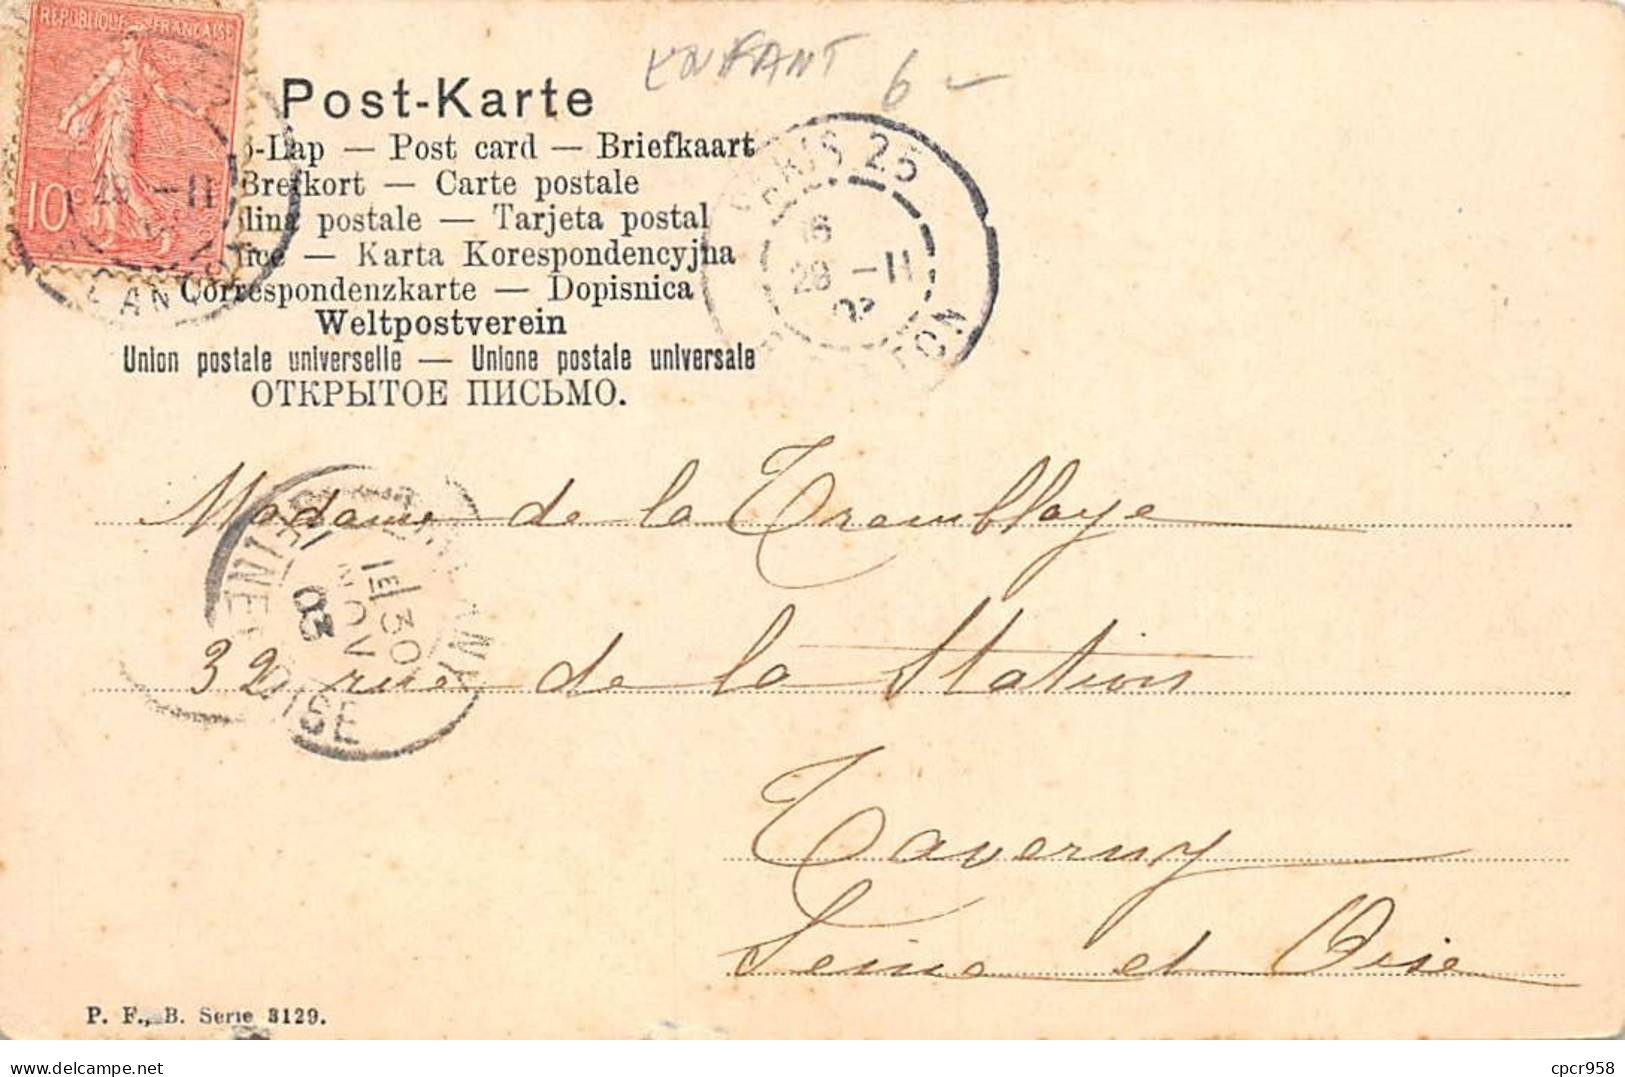 REPUBLIQUE FRANÇAISE
10 c
29 -II
ENFANT 6 -
Post-Karte
-Lap — Post card — Briefkaart
Brefkort — Carte postale
postale — Tarjeta postal
— Karta Korespondencyjna
Correspondenzkarte — Dopisnica
Weltpostverein
Union postale universelle — Unione postale universale
ОТКРЫТОЕ ПИСЬМО.
PARIS 25
16
29 -II
03
Madame de la Tremblaye
32 rue de la Station
Taverny
Seine et Oise
1E/30
NOV
03
OISE
P. F., B. Serie 3129.
cpcr958